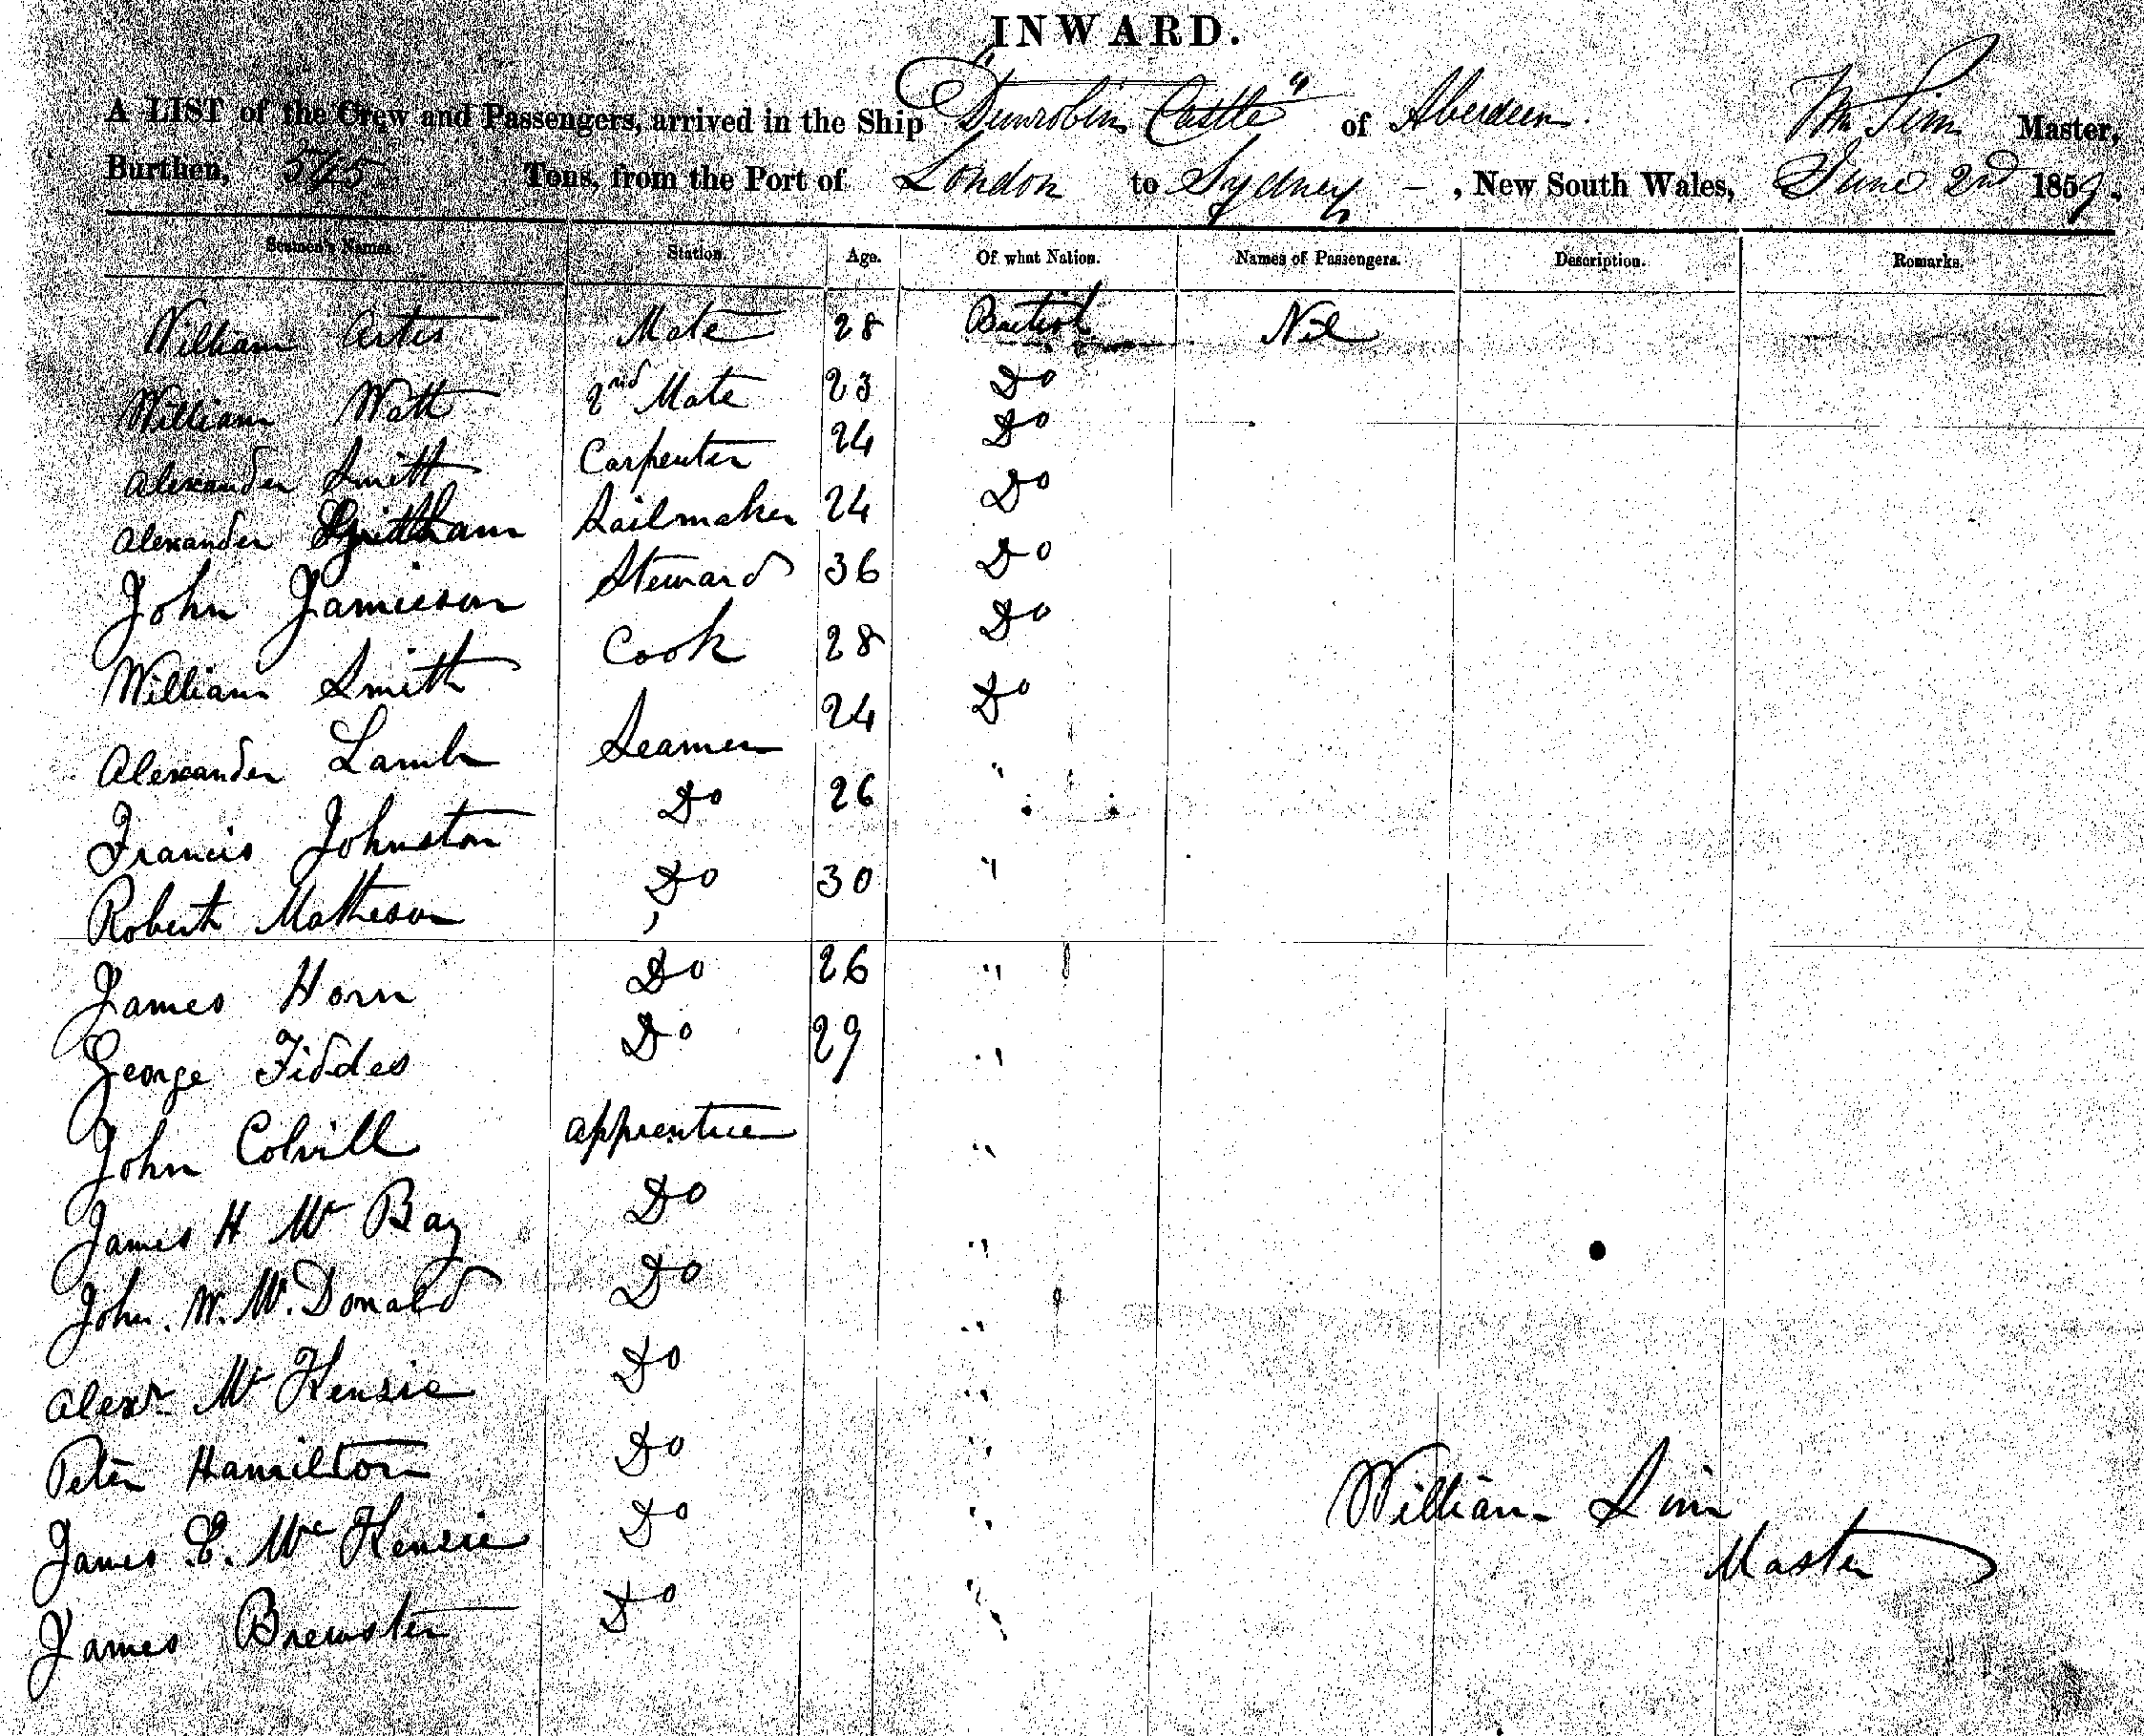 INWARD.
A LIST of the Crew and Passengers, arrived in the Ship "Dunrobin Castle" of Aberdeen. Wm Sim Master,
Burthen, 545 Tons, from the Port of London to Sydney - , New South Wales, June 2nd 1859.
Seamen's Names. Station. Age. Of what Nation. Names of Passengers. Description. Remarks.
William Artis Mate 28 British Nil
William Watt 2nd Mate 23 Do
Alexander Smith Carpenter 24 Do
Alexander Sailmaker 24 Do
John Jamieson Steward 36 Do
William Smith Cook 28 Do
Alexander Lamb Seamen 24 Do
Francis Johnston Do 26 "
Robert Matheson Do 30 "
James Horn Do 26 "
George Fiddes Do 29 "
John Colvill Apprentice "
James H Mc Bay Do "
John. W. Mc. Donald Do "
Alexr Mc Kensie Do "
Peter Hamilton Do "
James E. Mc Kensie Do "
James Brewster Do "
William Sim
Master